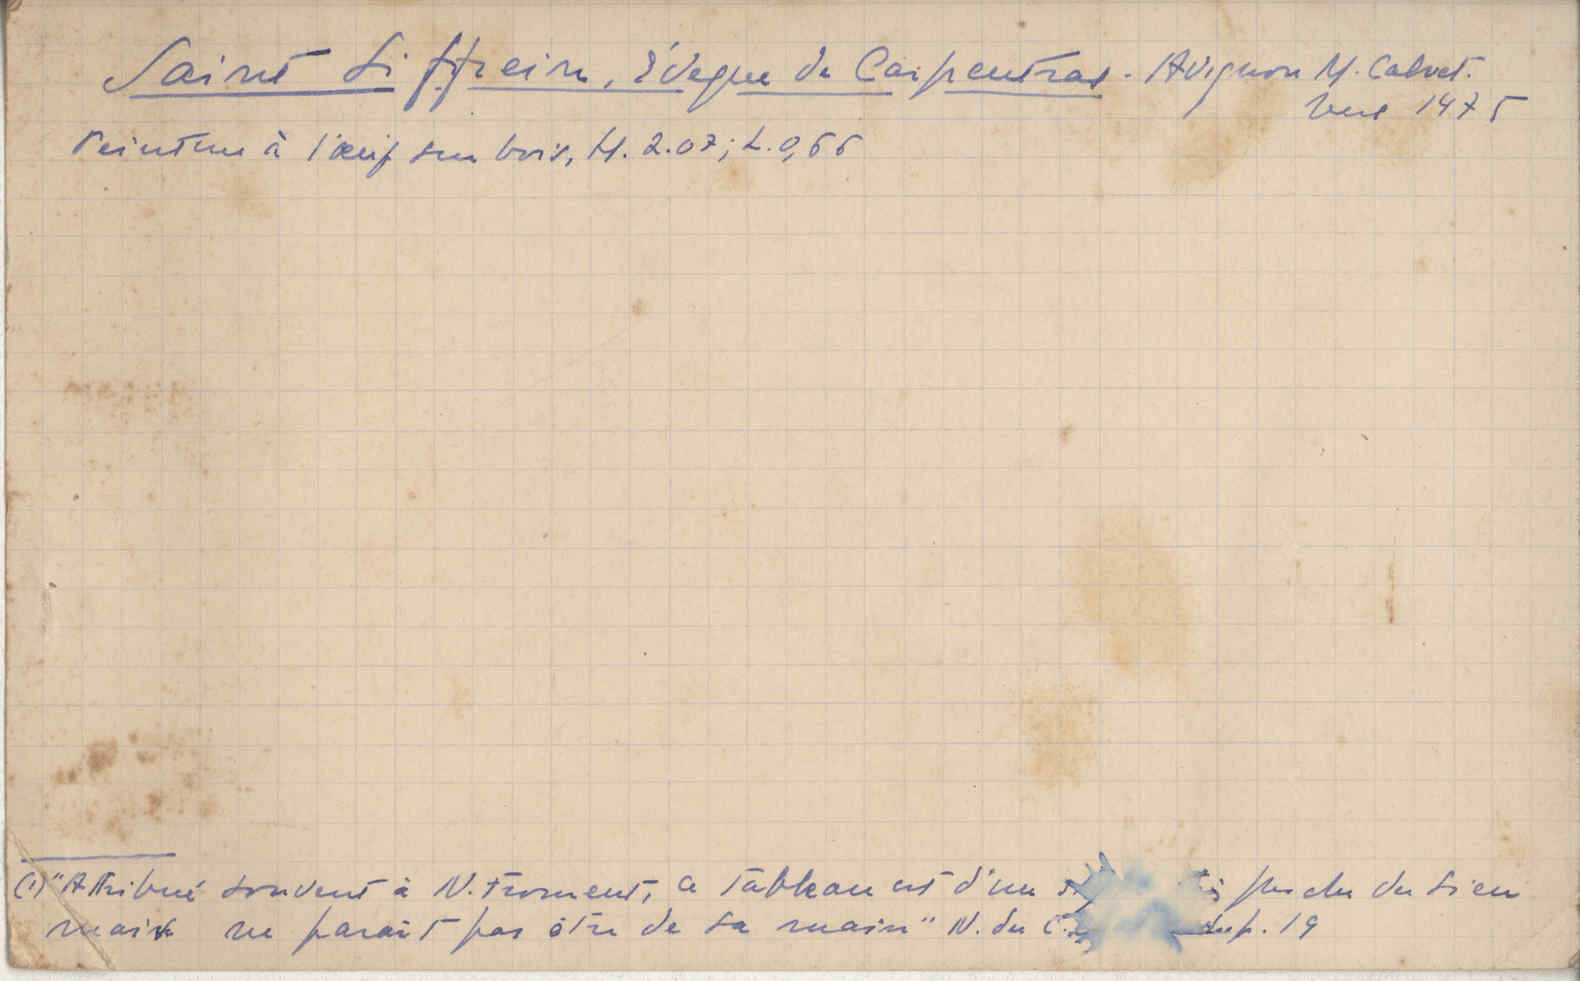 Saint Siffrein, Évêque de Carpentras. Avignon M. Calvet.
Vers 1475
Peinture à l'œuf sur bois, H. 2.07; L. 0,66
(1) "Attribué souvent à N. Froment, ce tableau est d'un très proche du sien
mais ne parait pas être de sa main" N. du C. p. 19